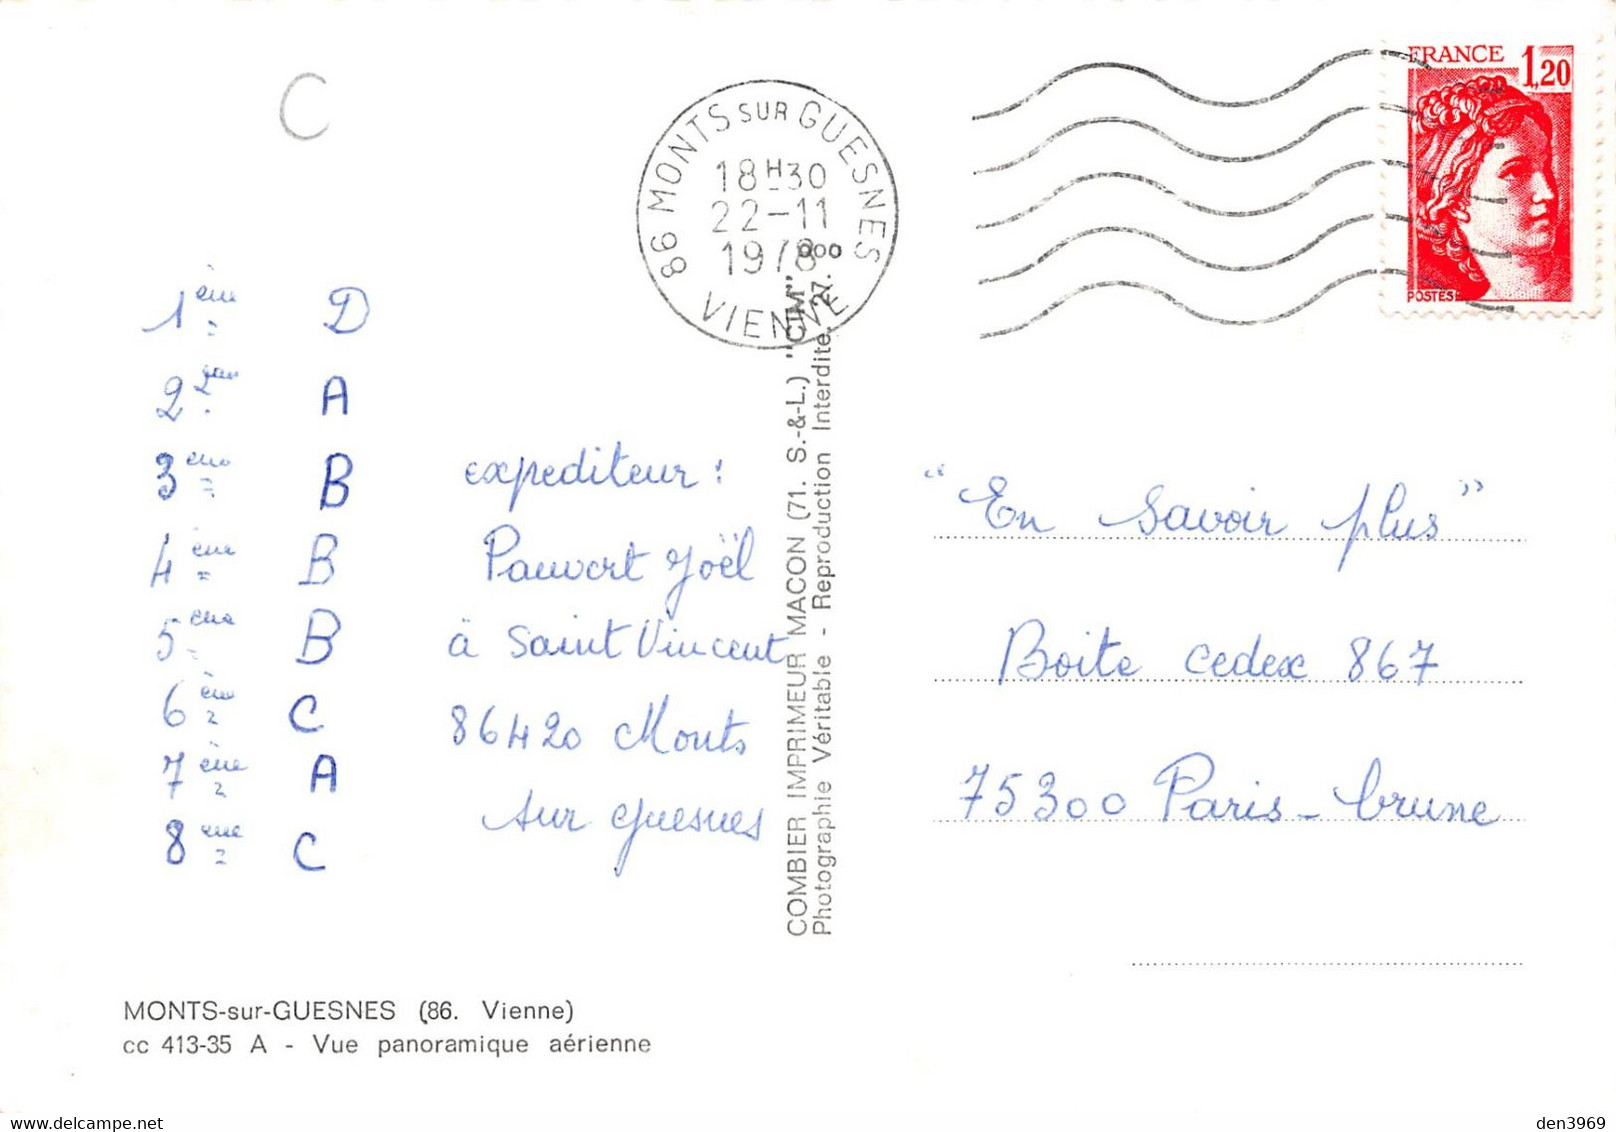 C
86 MONTS SUR GUESNES
18H30
22-11
1978
VIENNE
FRANCE 1,20
POSTES
1ème D
2ème A
3ème B
4ème B
5ème B
6ème C
7ème A
8ème C
expediteur :
Pauvert Joël
à Saint Vincent
86420 Monts
sur Guesnes
COMBIER IMPRIMEUR MACON (71. S.-&-L.) "CIM"
Photographie Véritable - Reproduction Interdite. 27.000
"En Savoir plus"
Boite cedex 867
75300 Paris-brune
MONTS-sur-GUESNES (86. Vienne)
cc 413-35 A - Vue panoramique aérienne
www.delcampe.net
den3969